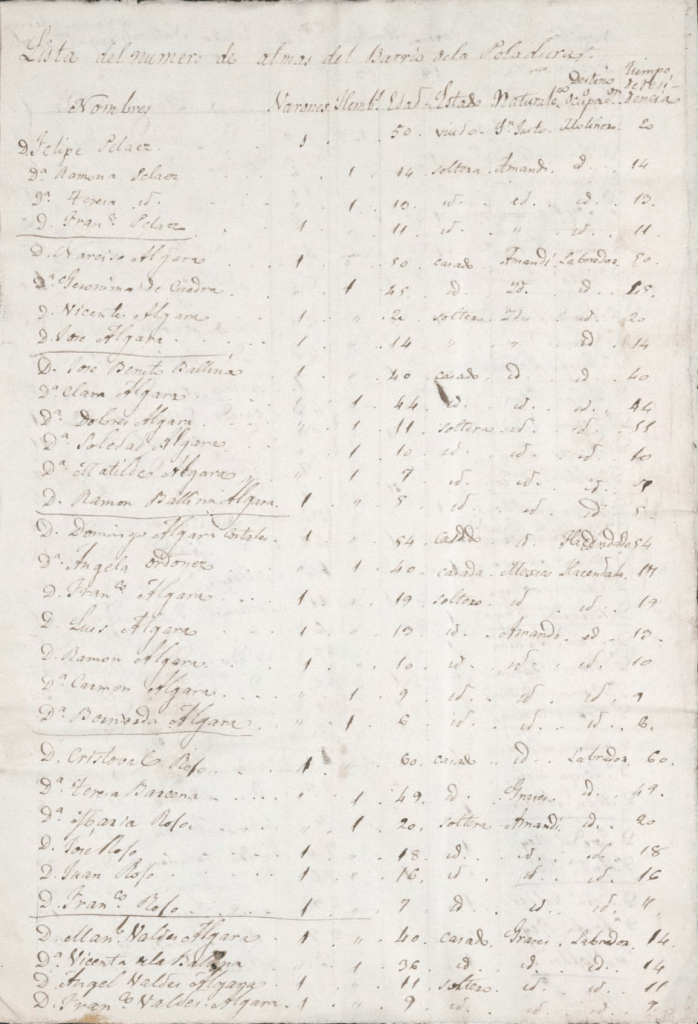 Lista del numero de almas del Barrio dela Poladura.
Nombres Varones Hemb.s Edad Estado Naturale.za Destino ú Ocupac.on Tiempo de Resi- dencia
D. Felipe Pelaez 1 50 viudo S.n Justo Molinero 20
D.a Ramona Pelaez " 1 14 soltera Amandi id. 14
D.a Teresa id. " 1 13 id. id. id. 13.
D. Fran.co Pelaez 1 11 id. " id. 11.
D. Narciso Algara 1 50 casado Amandi Labrador 50.
D.a Geronima de Cuadra 1 45 id Id. id.
D. Vicente Algara 1 " 20 soltero Id. id. 20
D. Jose Algara 1 " 14 " " id 14
D. Jose Benito Ballina 1 " 40 casado id id 40
D.a Clara Algara " 1 44 id. id. id. 44
D.a Dolores Algara " 1 11 soltera id. id. 11
D.a Soledad Algara " 1 10 id. id. id. 10
D.a Matilde Algara " 1 7 id. id. id. 7
D. Ramon Ballina Algara 1 " 5 id. id. id. 5.
D. Domingo Algara Costales 1 " 54 casado id. Hacendado 54
D.a Angela Ordoñez " 1 40 casada Hacendada 17
D. Fran.co Algara 1 " 19 soltero id. id. 19
D. Luis Algara 1 " 13 id. Amandi id. 13.
D. Ramon Algara 1 " 10 id. id. id. 10
D.a Carmen Algara " 1 9 id. id. id. 9
D.a Bernarda Algara " 1 6 id. id. id. 6.
D. Cristoval Roso 1 60 casado id. Labrador 60.
D.a Teresa Barcena " 1 49 id. Graces id. 49.
D.a Maria Roso " 1 20 soltera Amandi id. 20
D. José Roso 1 " 18 id. id. id. 18
D. Juan Roso 1 " 16 id. id. id. 16
D. Fran.co Roso 1 " 7 id id. id. "
D. Man.l Valdes Algara 1 " 40 casado Graces Labrador 14.
D.a Vicenta de la Ballina " 1 36 id. id. id. 14
D. Angel Valdes Algara 1 " 11 soltero id. id. 11
D. Fran.co Valdes Algara 1 " 9 id. id. id. 9